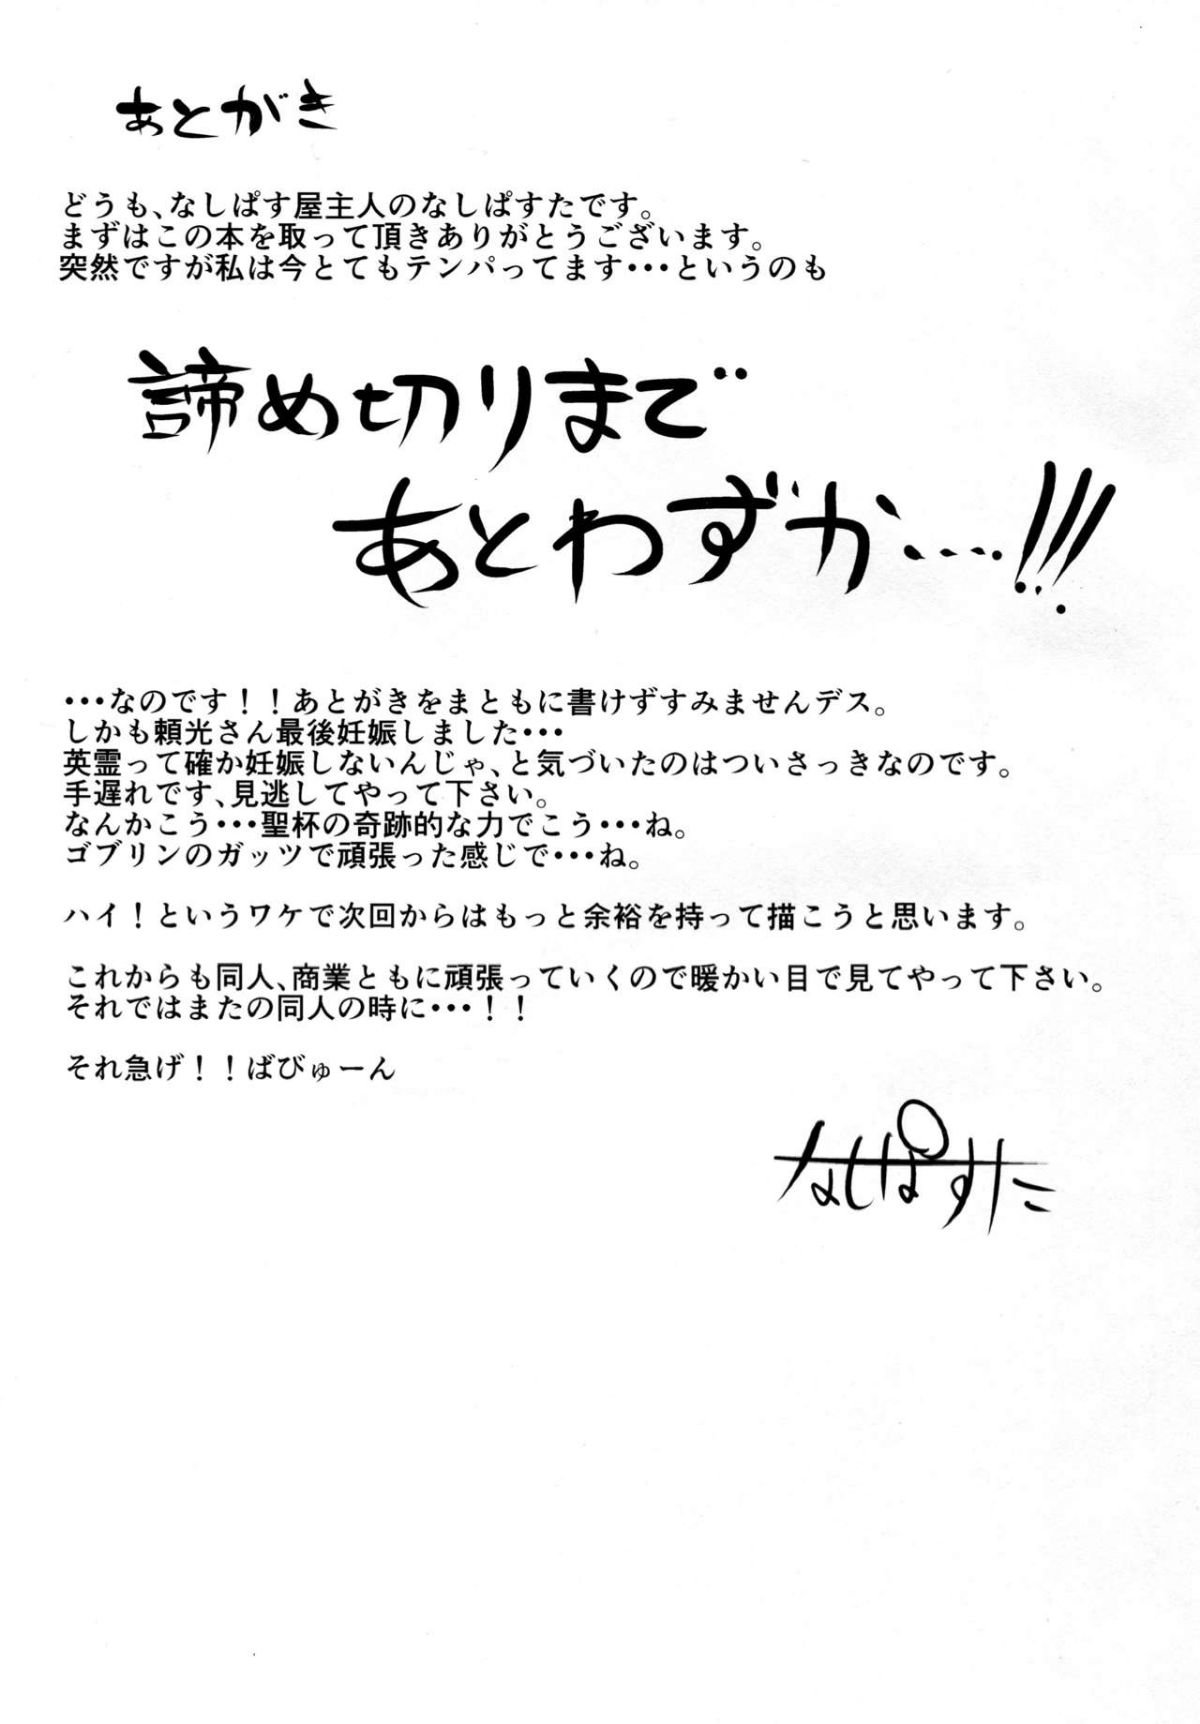 あとがき
どうも、なしぱす屋主人のなしぱすたです。
まずはこの本を取って頂きありがとうございます。
突然ですが私は今とてもテンパってます・・・というのも
諦め切りまで
あとわずか・・・・!!!
・・・なのです！！あとがきをまともに書けずすみませんデス。
しかも頼光さん最後妊娠しました・・・
英霊って確か妊娠しないんじゃ、と気づいたのはついさっきなのです。
手遅れです、見逃してやって下さい。
なんかこう・・・聖杯の奇跡的な力でこう・・・ね。
ゴブリンのガッツで頑張った感じで・・・ね。
ハイ！というワケで次回からはもっと余裕を持って描こうと思います。
これからも同人、商業ともに頑張っていくので暖かい目で見てやって下さい。
それではまたの同人の時に・・・！！
それ急げ！！ばびゅーん
なしぱすた